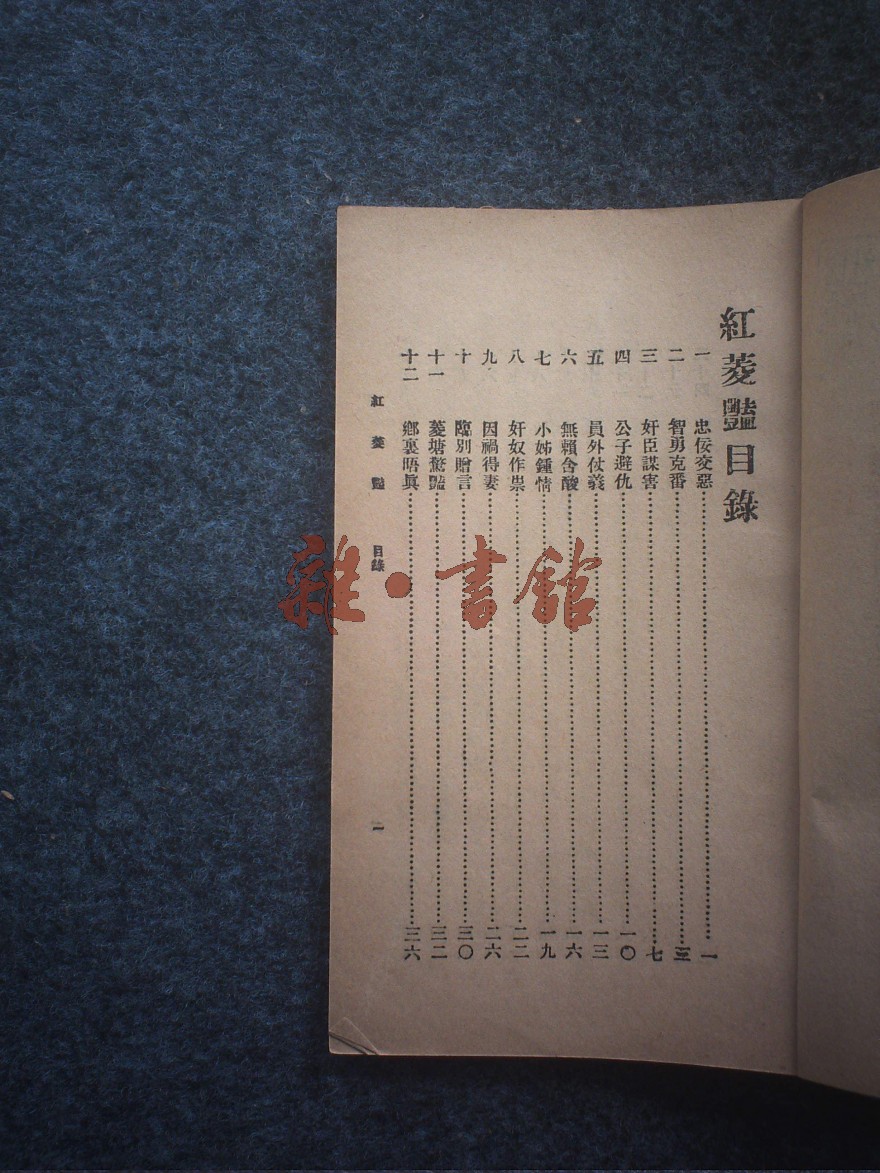 紅菱豔目錄
一 忠佞交惡……一
二 智勇克番……三
三 奸臣謀害……七
四 公子避仇……一〇
五 員外仗義……一三
六 無賴含酸……一六
七 小姊鍾情……一九
八 奸奴作祟……二二
九 因禍得妻……二六
十 臨別贈言……三〇
十一 菱塘驚豔……三二
十二 鄉裏晤眞……三六
紅菱豔 目錄
一
雜·書館